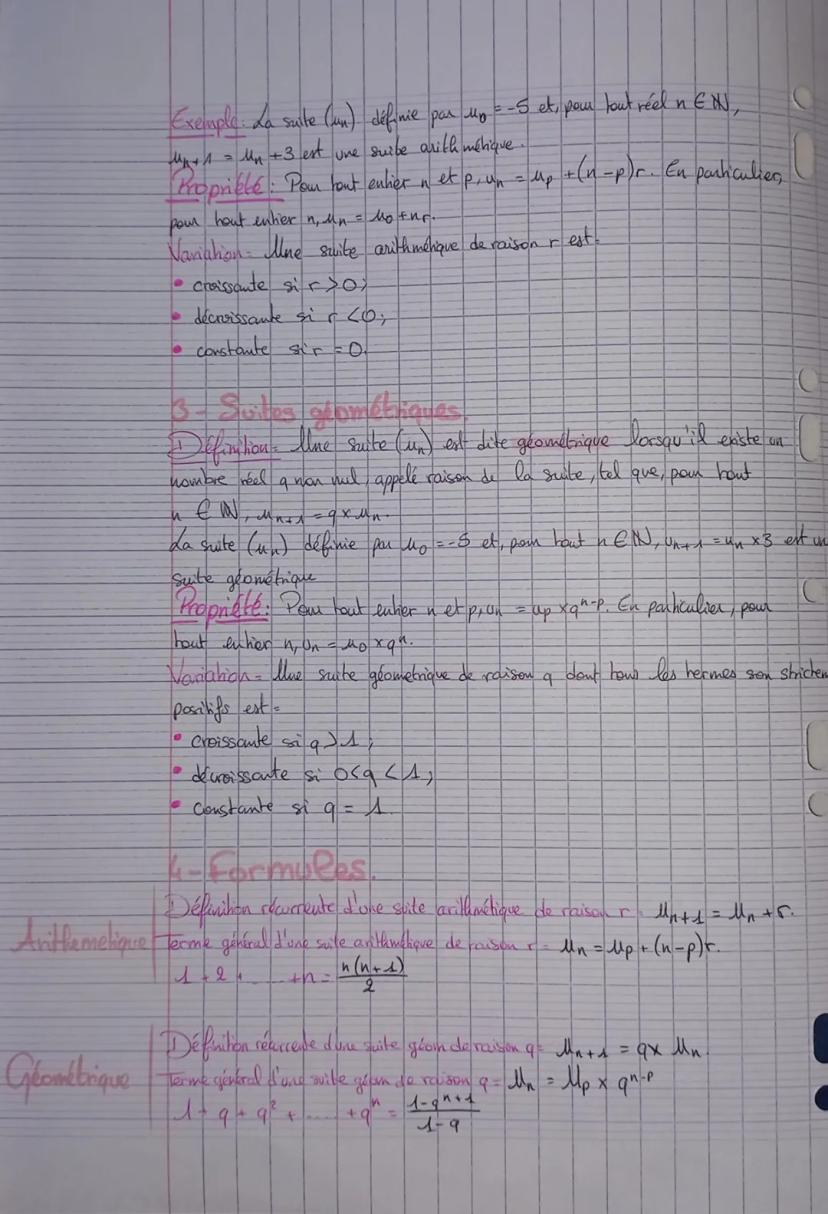 Exemple: La suite (un) définie par u₀ = -5 et, pour tout réel n ∈ ℕ,
uₙ₊₁ = uₙ + 3 est une suite arithmétique.
Propriété: Pour tout entier n et p, uₙ = uₚ + (n-p)r. En particulier,
pour tout entier n, uₙ = u₀ + nr.
Variation: Une suite arithmétique de raison r est:
• croissante si r > 0;
• décroissante si r < 0;
• constante si r = 0.
3- Suites géométriques.
Définition: Une suite (uₙ) est dite géométrique lorsqu'il existe un
nombre réel q non nul, appelé raison de la suite, tel que, pour tout
n ∈ ℕ, uₙ₊₁ = q × uₙ.
La suite (uₙ) définie par u₀ = -5 et, pour tout n ∈ ℕ, uₙ₊₁ = uₙ × 3 est un
suite géométrique
Propriété: Pour tout entier n et p, uₙ = uₚ × qⁿ⁻ᵖ. En particulier, pour
tout entier n, uₙ = u₀ × qⁿ.
Variation: Une suite géometrique de raison q dont tous les termes son stricten
positifs est:
• croissante si q > 1;
• décroissante si 0 < q < 1;
• constante si q = 1
4- Formules.
Définition récurrente d'une suite arithmétique de raison r: uₙ₊₁ = uₙ + r.
Arithametique
Terme général d'une suite arithmétique de raison r: uₙ = uₚ + (n-p)r.
1 + 2 + ..... + n = n(n+1)/2
Définition récurrente d'une suite géom de raison q: uₙ₊₁ = q × uₙ.
Géométrique
Terme général d'une suite géom de raison q = uₙ = uₚ × qⁿ⁻ᵖ
1 + q + q² + ..... + qⁿ = 1-qⁿ⁺¹/1-q